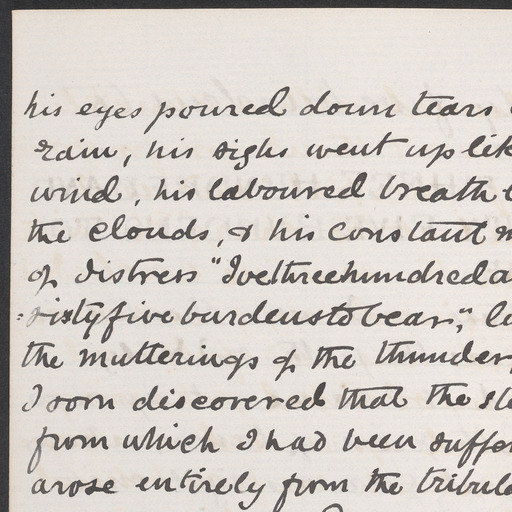 his eyes poured down tears
rain, his sighs went up lik
wind, his laboured breath
the clouds, & his constant m
of distress "Ivethreehundreda
:sixtyfiveburdenstobear," l
the mutterings of the thunder,
I soon discovered that the sto
from which I had been suffer
arose entirely from the tribula